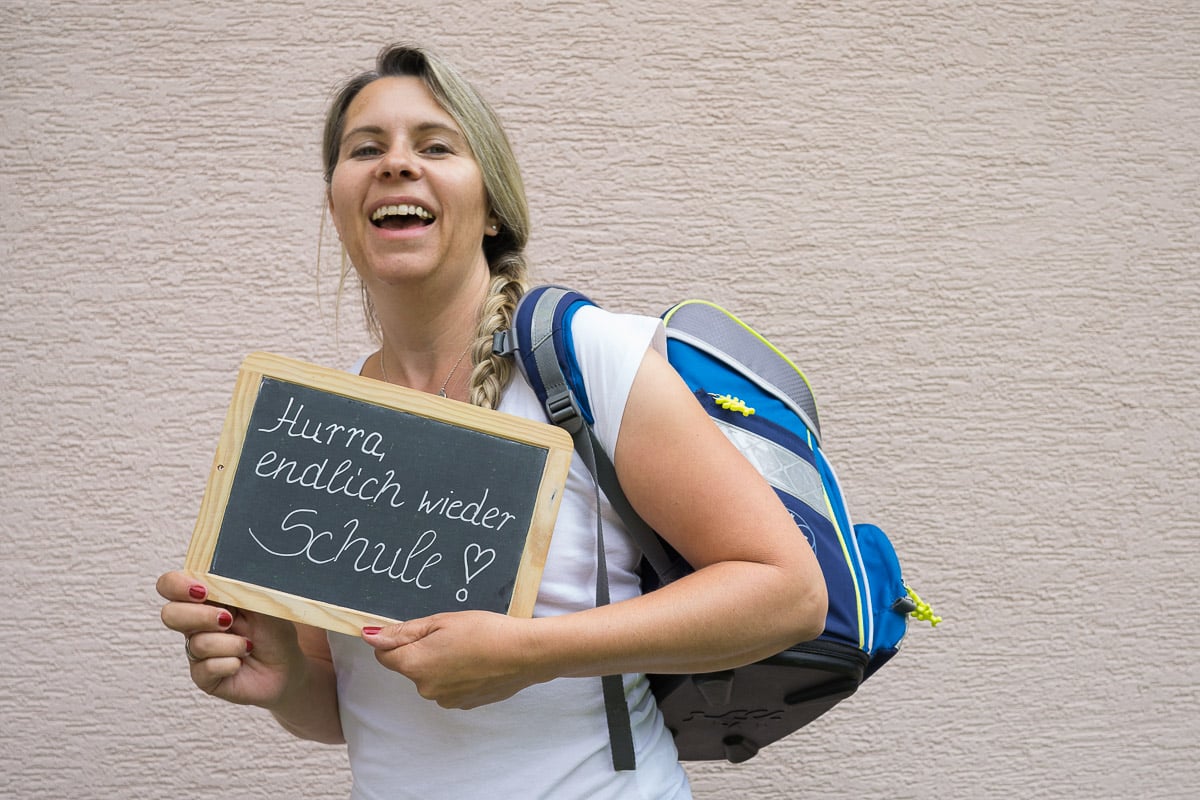 Hurra,
endlich wieder
Schule!